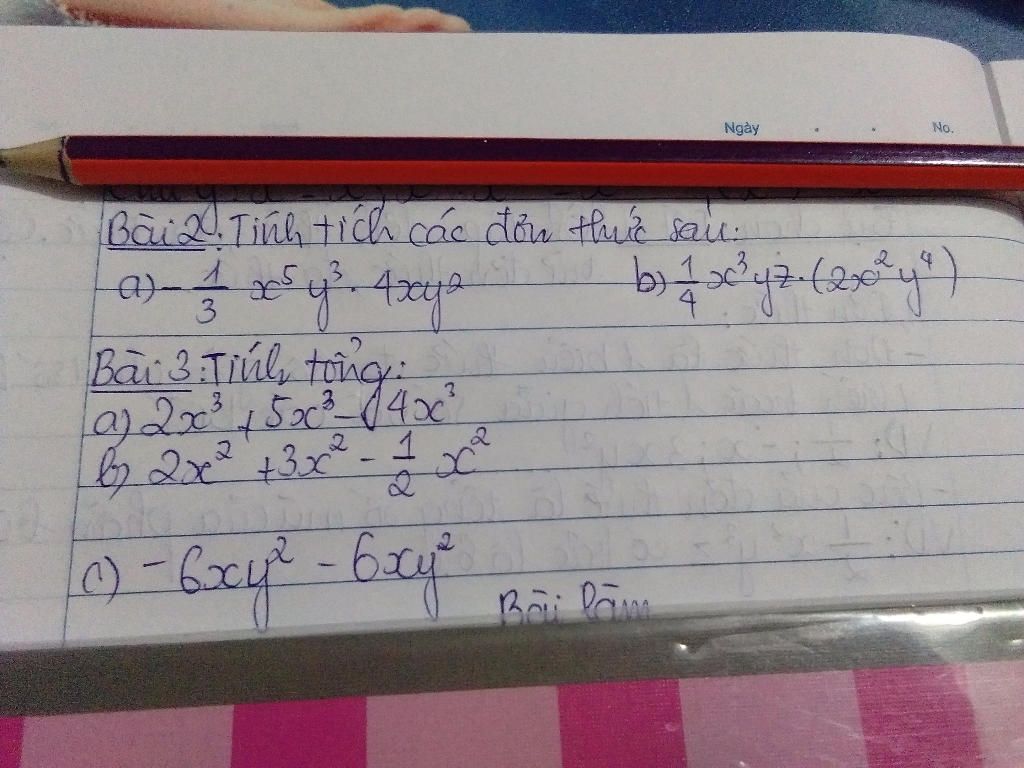 Ngày . . No.
Bài 2: Tính tích các đơn thức sau:
a) - 1/3 x⁵y³ . 4xy² b) 1/4 x³yz . (2x²y⁴)
Bài 3: Tính tổng:
a) 2x³ + 5x³ - 4x³
b) 2x² + 3x² - 1/2 x²
c) - 6xy² - 6xy²
Bài làm